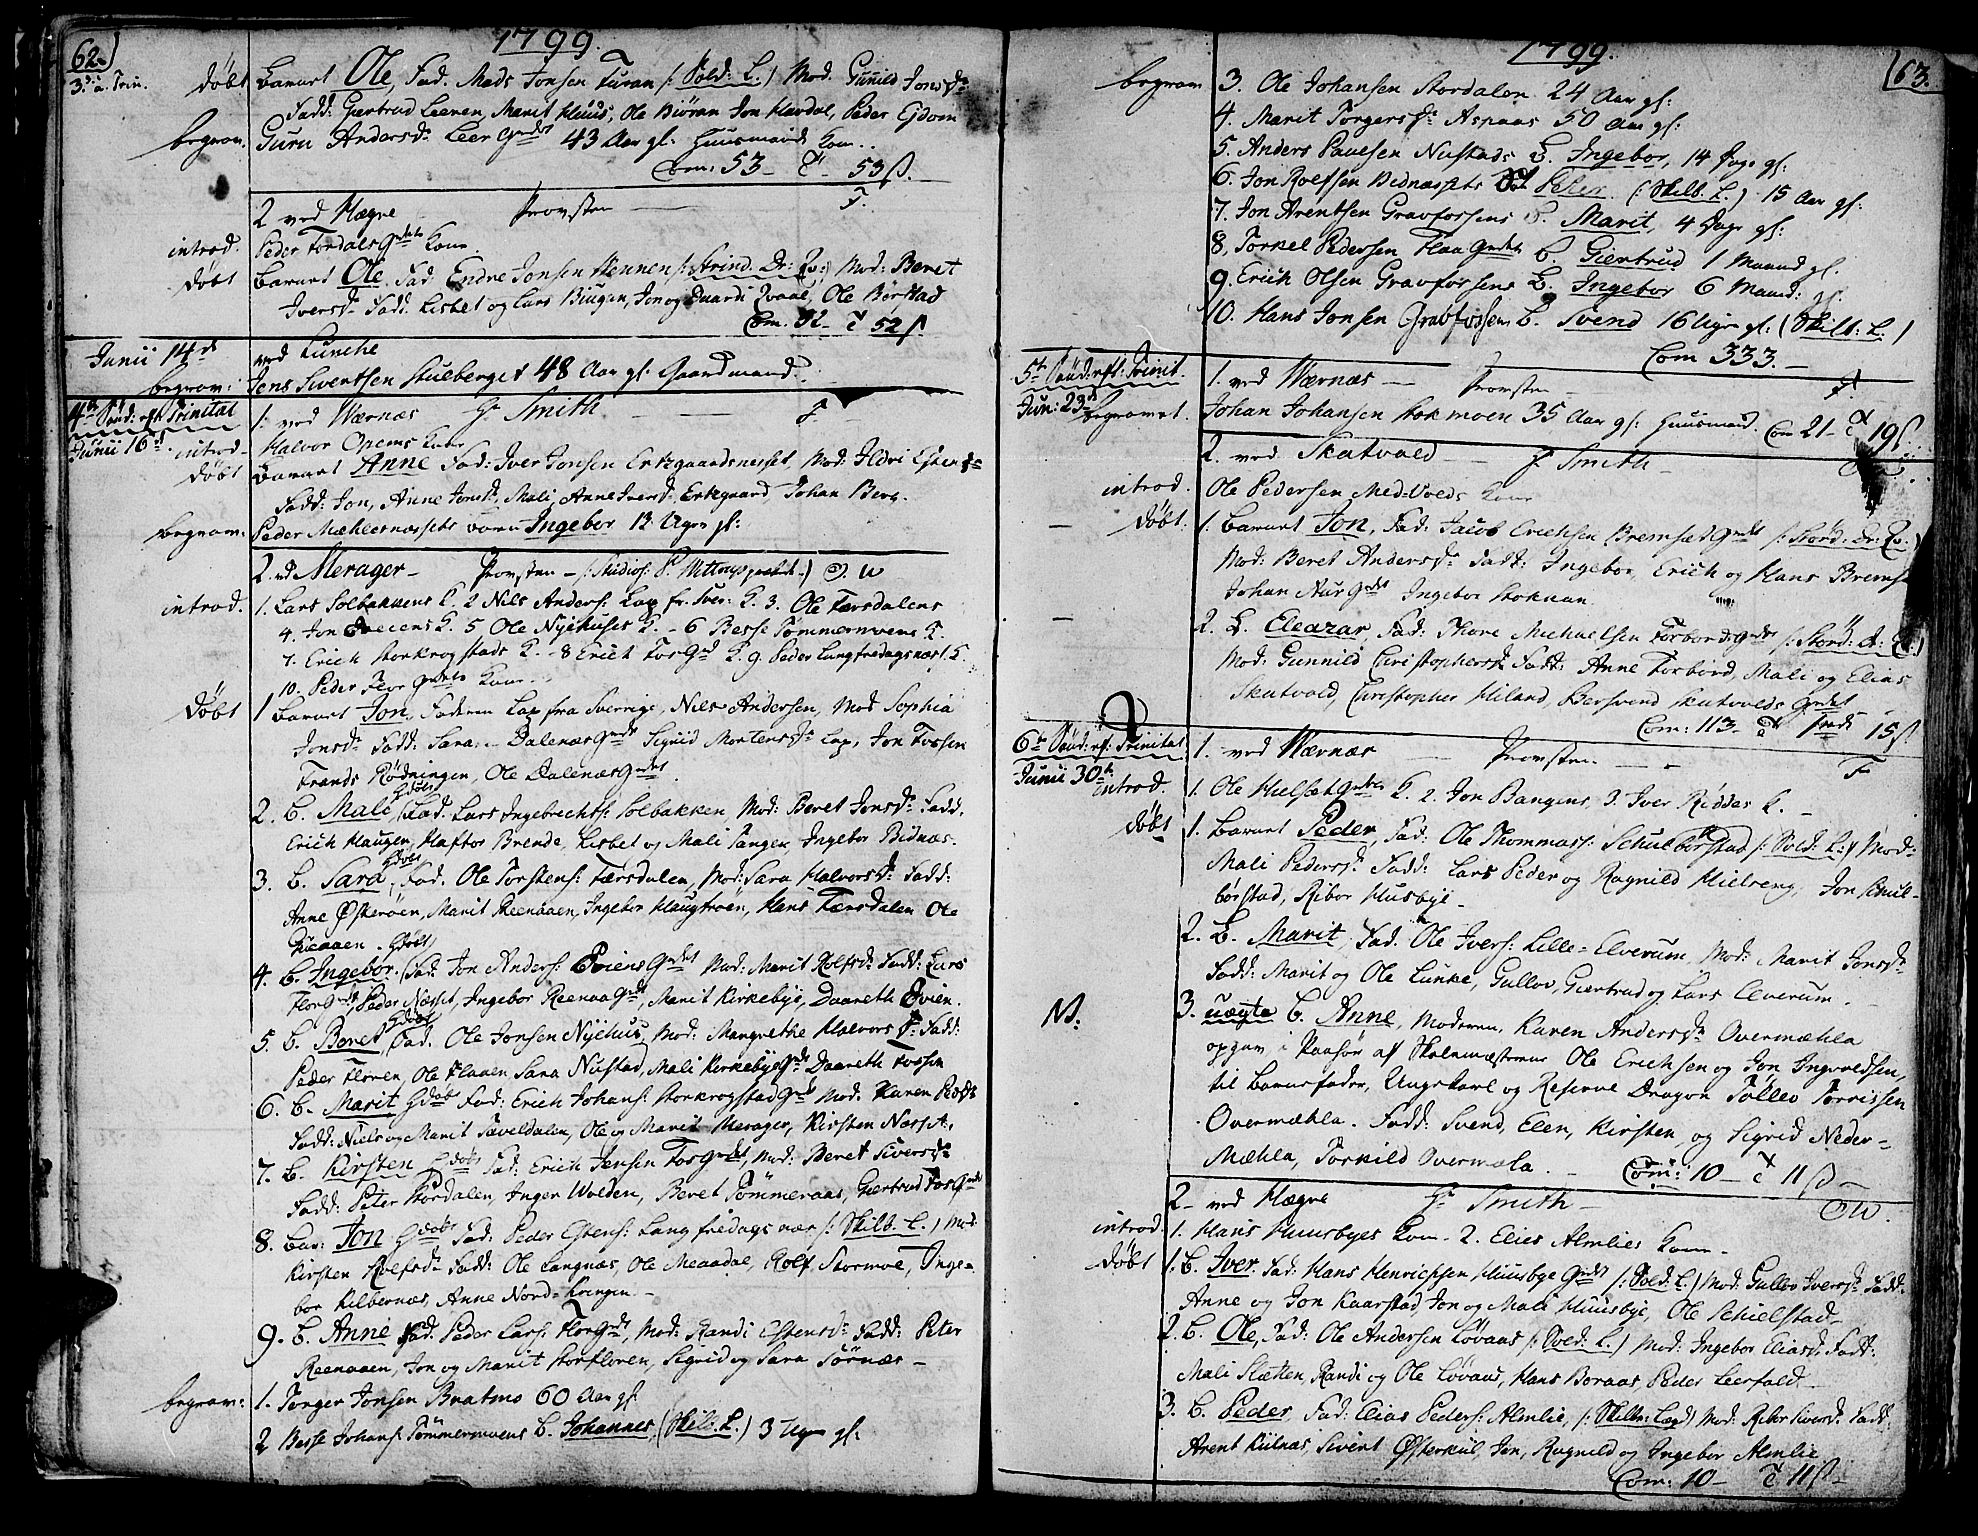 62.
1799.
3die s. Trin.
døbt Barnet Ole, Fad. Mads Jonsen Turan /: Sold: L. / Mod. Gunild Jonsdr
Fadd: Giertrud Leeren, Marit Huus, Ole Biöran Jon Havdal, Peder Ejdom
begrav. Guru Andersdr Leer Grdt 43 Aar gl: Huusmands Kone.
Com: 53 - T - 53 ß.
2 ved Hegre - Provsten - F.
introd. Peder Fordals Grdts Kone.
døbt Barnet Ole. Fad Endre Jonsen Hennen /: Strind. Dr: Qv: / Mod: Beret
Iversdr Fadd. Lisbet og Lars Biugen, Jon og Guardi Qvaal, Ole Börstad
Com. 92 - T 52 ß
Junii 14d ved Lunche
begrav: Jens Sivertsen Stuberget 48 Aar gl: Gaardmand.
4de Sönd: eft Trinitat 1. ved Wærnæs Hr Smith. - F.
Junii 16d introd - Halvor Opems Kone
døbt Barnet Anne Fad: Iver Jonsen Erkgaardsnesset, Mod: Ildri Estensdr
Fadd: Jon, Anne Jonsdr, Mali, Anne Iversdr Erkgaard Johan Berg.
begrav: Peder Mæhlernæssets barn Ingebor 12 Uger gl:
2. ved Merager - Provsten - /: Studios: P. Wittrup prædikt - / O. W
introd. 1. Lars Solbakkens K. 2 Nils Anders: Lap fr. Sver: K. 3. Ole Færsdalens
4. Jon Eveiens K. 5 Ole Nyehuses K. - 6 Besse Tømmermoens K.
7. Erich Storkrogstads K. - 8 Erich Fos Grd K. 9. Peder Langfredagsnæs K.
10. Peder Flor Grdts Kone.
døbt 1 Barnet Jon, Faderen Lap fra Sverrige, Nils Andersen, Mod Sophia
Jonsdr Fadd: Sara - Dalenæs Grdt Sigrid Mortensdr Lap, Jon Fossen
Trends Rödningen, Ole Dalenæs Grdt.
2. B. Mali Gdøbt, Fad. Lars Ingebrechts: Solbakken Mod: Beret Jonsdr Fadd.
Erich Haugen, Haftor Brende, Lisbet og Mali Langen, Ingebor Bidnæs.
3. B. Sara Gdøbt, Fad. Ole Torstens: Færsdalen, Mod: Sara Halvorsdr Fadd:
Anne Østerøen, Marit Reenaaen, Ingebor Haugtrøen, Hans Færsdalen Ole
Gueaaen.
4. B. Ingebor Gdøbt, Fad Jon Anders: Eviens Grdts Mod: Marit Rolfsdr Fadd: Lars
Flor Grdts Peder Næsset, Ingebor Reenaa Grdt, Marit Kirkebye, Daareth Evien.
5. B. Beret Gdøbt Fad. Ole Jonsen Nyehus, Mod: Mangrethe Halvorsdr: Fadd:
Peder Floren, Ole Flaaen Sara Nustad, Mali Kirkebye Grdt Daareth Fossen
6. B. Marit Gdøbt Fad: Erich Johans: Storkrogstad Grdt Mod: Karen Rolfsdr
Fadd: Niels og Marit Faveldalen, Ole og Marit Merager, Kirsten Næsset,
7. B. Kirsten Gdøbt Fad: Erich Jensen Fos Grdt, Mod: Beret Siversdr
Fadd: Peter Stordalen, Inger Wolden, Beret Tömmeraas, Giertrud Fos Grdt
8. Bar: Jon Gdøbt Fad: Peder Estens: Langfredagsnæs /: Skilb. L. / Mod.
Kirsten Rolfsdr Fadd: Ole Langnæs, Ole Meaadal, Rolf Stormoe, Inge-
bor Kilbernæs, Anne Nord-Kringen -
9. B. Anne Fad. Peder Lars: Flor Grdt, Mod: Randi Estensdr: Fadd: Peter
Reenaaen, Jon og Marit Storfloren, Sigrid og Sara Sørnæs -
begrav: 1. Torger Jonsen Bratmo 60 Aar gl
2 Besse Johans: Tømmermoens B. Johannes, (Skilb: L.) 3 Uger gl:
1799.
63.
begrav 3. Ole Johansen Stordalen 24 Aar gl:
4. Marit Torgersdr Aspaas 50 Aar gl:
5. Anders Pauesen Nustads B. Ingebor, 14 Dage gl:
6. Jon Rolfsen Bidnæssets Peter (: Skilb. L.) 15 Aar gl:
7. Jon Arentsen Gravfossens B. Marit, 4 Dage gl:
8. Torkel Pedersen Flaa Grdts B. Giertrud 1 Maaned gl.
9. Erich Olsen Gravfossens B. Ingebor 6 Maand: gl:
10. Hans Jonsen Gravfossens B. Svend 16 Uger gl: (Skilb: L.)
Com 333. -
5te Sönd: eft: Trinit. 1. ved Wærnæs - Provsten - F
Jun: 23d begravet. Johan Johansen Stokmoen 35 Aar gl: Huusmand. Com 21 - T 19 ß.
2. ved Skatvold - Hr Smith -
introd. Ole Pedersen Med-Volds Kone
døbt. 1. Barnet Jon, Fad: Jacob Erichsen Bremset Grdt /: Störd. Dr: Qv. /
Mod: Beret Andersdr Fadd: Ingebor, Erich og Hans Bremset
Johan Aur Grdt Ingebor Stoknan
2. B. Eleazar, Fad: Thore Michaelsen Forbord Grdt /: Störd: Dr. Qv: /
Mod: Gunnild Christophersdr Fadd: Anne Forbord, Mali og Elias
Skatvold, Christopher Hiland, Bersvend Skatvolds Grdt
Com: 113. T 15 ß.
6te Sönd: eft: Trinitat. 1. ved Wærnæs - Provsten - F
Junii 30te introd. 1. Ole Hielset Grdts K. 2. Jon Bangens, 3. Iver Röddes K. -
døbt 1. Barnet Peder, Fad: Ole Thommass: Schulbörstad /: Sold: L: / Mod:
Mali Pedersdr Fadd: Lars Peder og Ragnild Hielseng, Jon Schul-
börstad, Ribor Husbye -
2. B. Marit, Fad. Ole Ivers: Lille-Elverum, Mod: Marit Jonsdr
Fadd: Marit og Ole Lunke, Gullov, Giertrud og Lars Elverum.
N. 3. uægte B. Anne, Moderen, Karen Andersdr Overmæhla
opgav i Paahør af Skolemæsterne Ole Erichsen og Jon Ingvoldsen,
til Barnefader, Ungekarl og Reserve Dragon Tollev Torrissen
Overmæhla. Fadd: Svend, Elen, Kirsten, og Sigrid Neder-
Mæhla, Torkild Overmæla. - Com: 10 - T 11 ß -
2. ved Hægre Hr Smith - O W.
introd. 1. Hans Huusbyes Kone - 2. Elies Almlies Kone -
døbt 1. B. Iver. Fad: Hans Henrichsen Huusbye Grdt /: Sold: L. / Mod: Gullov Iversdr Fadd:
Anne og Jon Kaarstad, Jon og Mali Huusbye, Ole Schielstad -
2. B. Ole, Fad: Ole Andersen Lövaas /: Sold. L. / Mod: Ingebor Eliasdr Fadd:
Mali Sletten, Randi og Ole Lövaas, Hans Boraas, Peder Leerfald
3. B. Peder, Fad: Elias Peders: Almlie, /: Skilb: Lægd / Mod: Ribor Siversdr Fadd:
Arent Kulnæs, Sivert Østerkiil, Jon, Ragnild og Ingebor Almlie
Com: 10 - T. 11 ß -